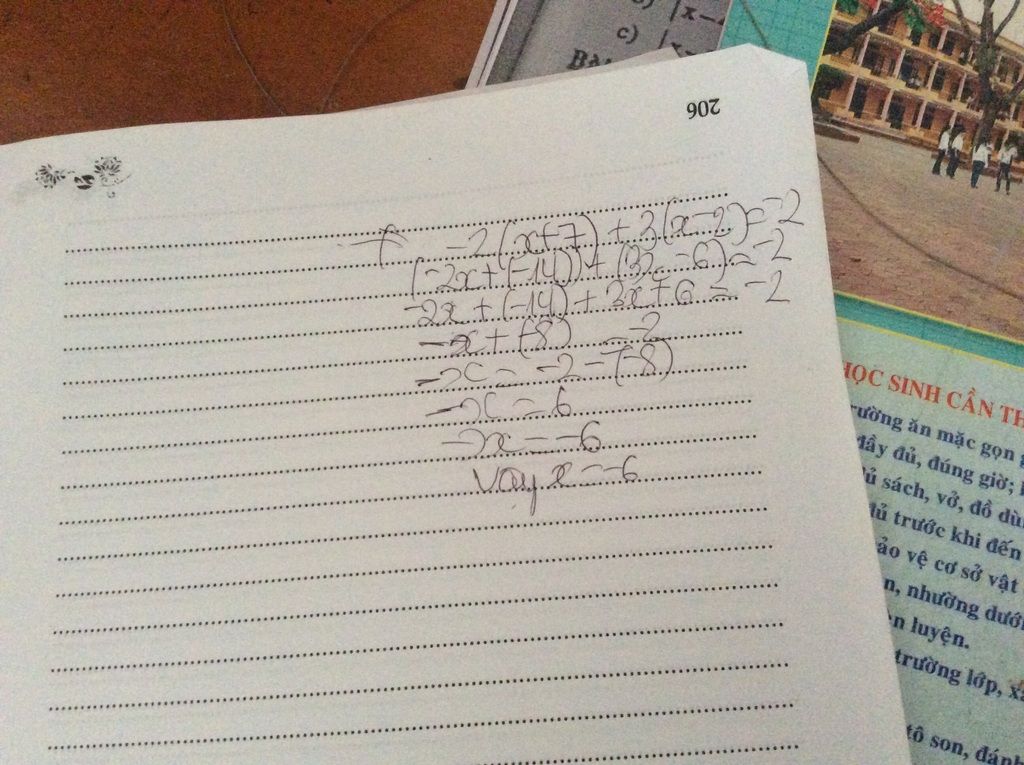 c)
206
-2(x+7) + 3(x-2) = -2
(-2x+(-14)) + (3x -6) = -2
-2x + (-14) + 3x + 6 = -2
-x + (-8) = -2
-x = -2 - (-8)
-x = 6
x = -6
Vay x = -6
HỌC SINH CẦN TH
rường ăn mặc gọn g
đầy đủ, đúng giờ;
ủ sách, vở, đồ dù
ủ trước khi đến
ảo vệ cơ sở vật
n, nhường dưới
èn luyện.
trường lớp, x
tô son, đánh